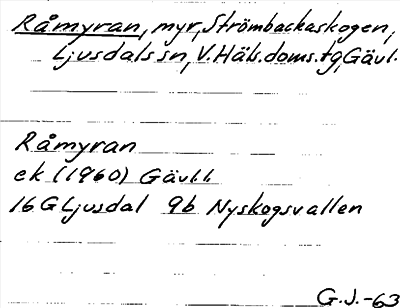 Råmyran, myr, Strömbackaskogen,
Ljusdals sn, V. Häls. doms. tg, Gävl.
Råmyran
ek (1960) Gävl.l.
16G Ljusdal 9b Nyskogsvallen
G.J.-63